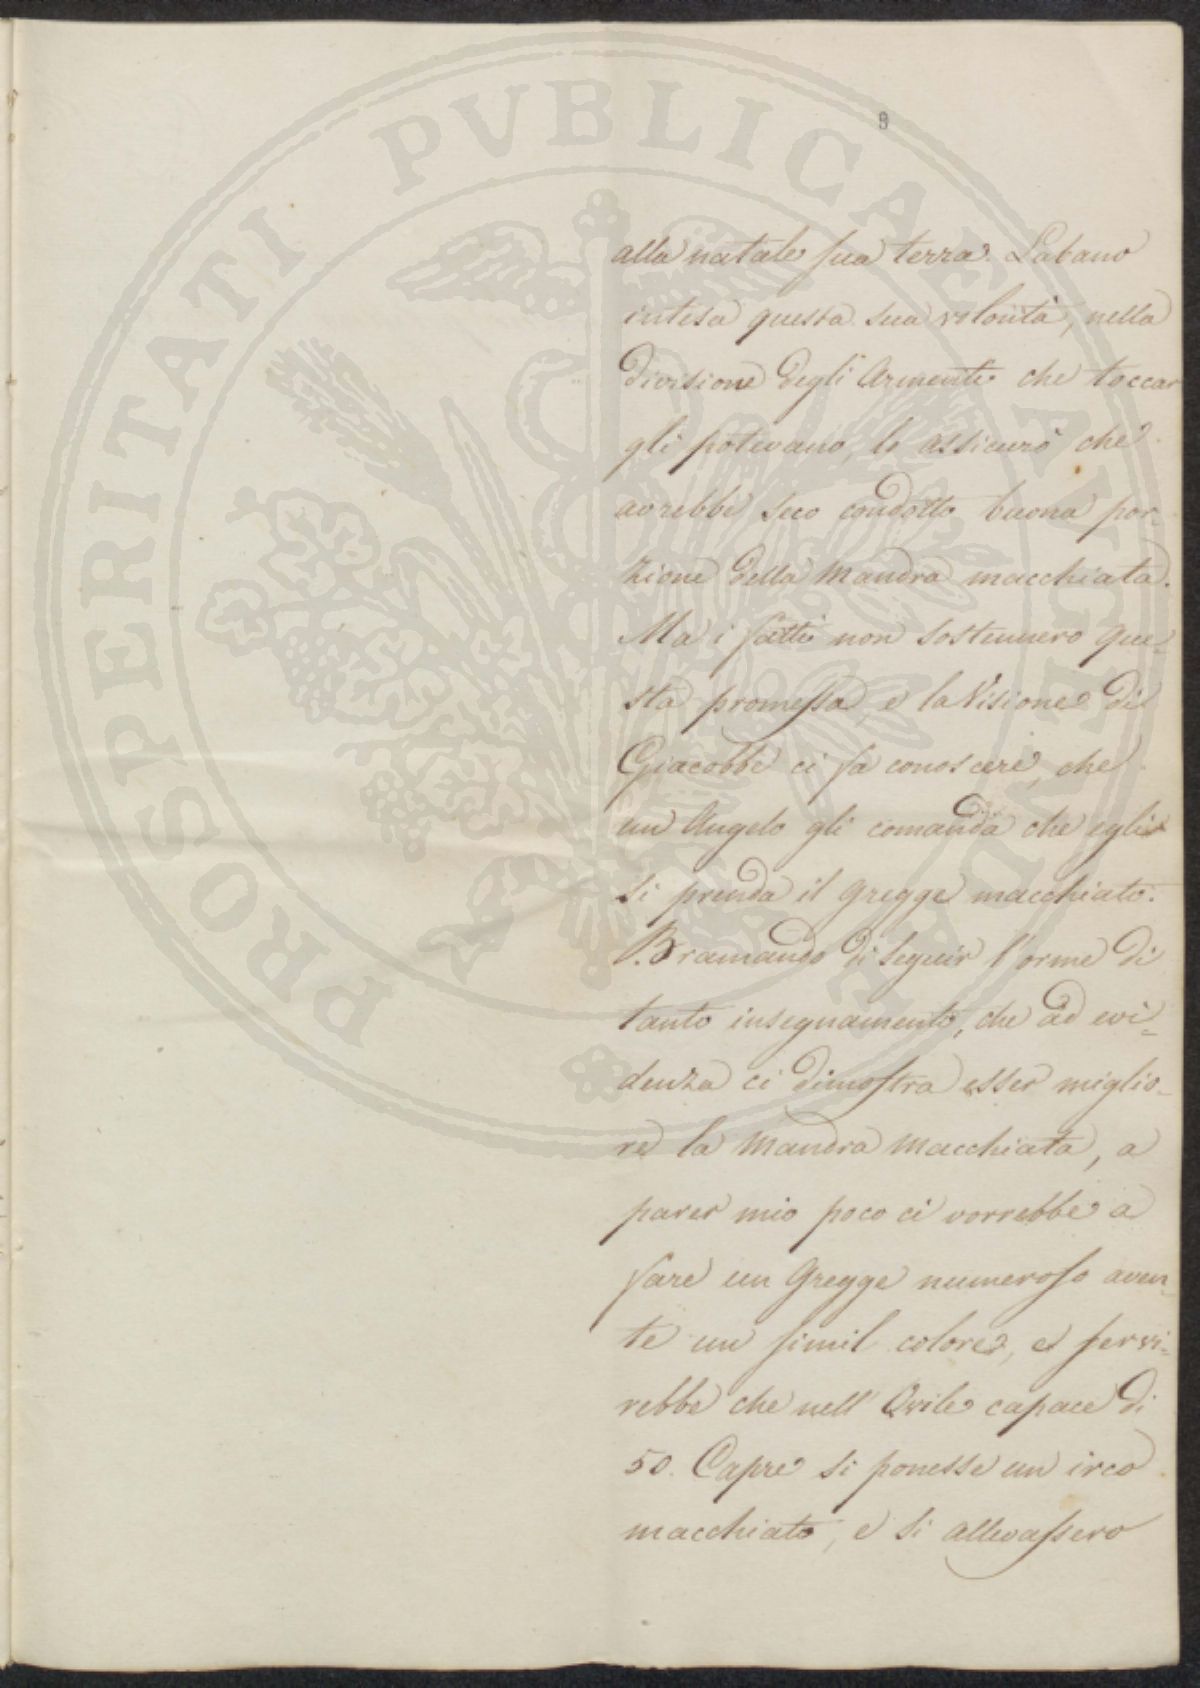 PROSPERITATI PVBLICAE AVGENDAE
8
alla natale sua terra. Labano
intesa questa sua volontà, nella
divisione degli Armenti che toccar
gli potevano, lo assicurò che
avrebbe seco condotto buona por-
zione della Mandra macchiata.
Ma i fatti non sostennero que-
sta promessa, e la Visione di
Giacobbe ci fa conoscere, che
un Angelo gli comanda che egli
si prenda il gregge macchiato.
Bramando di seguir l'orme di
tanto insegnamento, che ad evi-
denza ci dimostra esser miglio-
re la Mandra Macchiata, a
parer mio poco ci vorrebbe a
fare un Gregge numeroso aven-
te un simil colore, e servi-
rebbe che nell' Ovile capace di
50. Capre si ponesse un irco
macchiato, e si allevassero